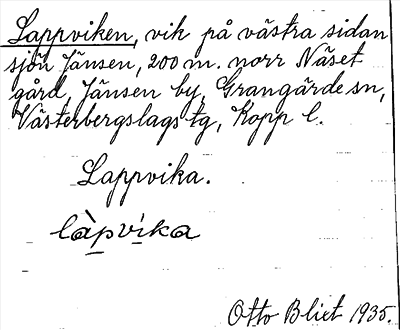 Lappviken, vik på västra sidan
sjön Jänsen, 200 m. norr Näset
gård, Jänsen by, Grangärde sn,
Västerbergslags tg, Kopp l.
Lappvika.
làpvika
Otto Blixt 1935.